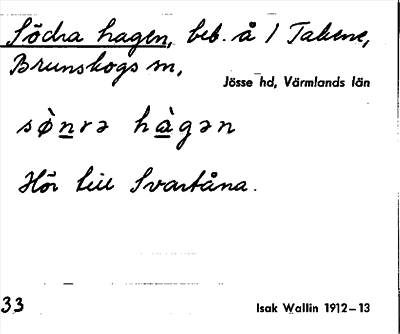 Södra hagen, beb. å 1 Takene,
Brunskogs sn,
Jösse hd, Värmlands län
sø̀nrə hàgən
Hör till Svartåna.
33
Isak Wallin 1912–13